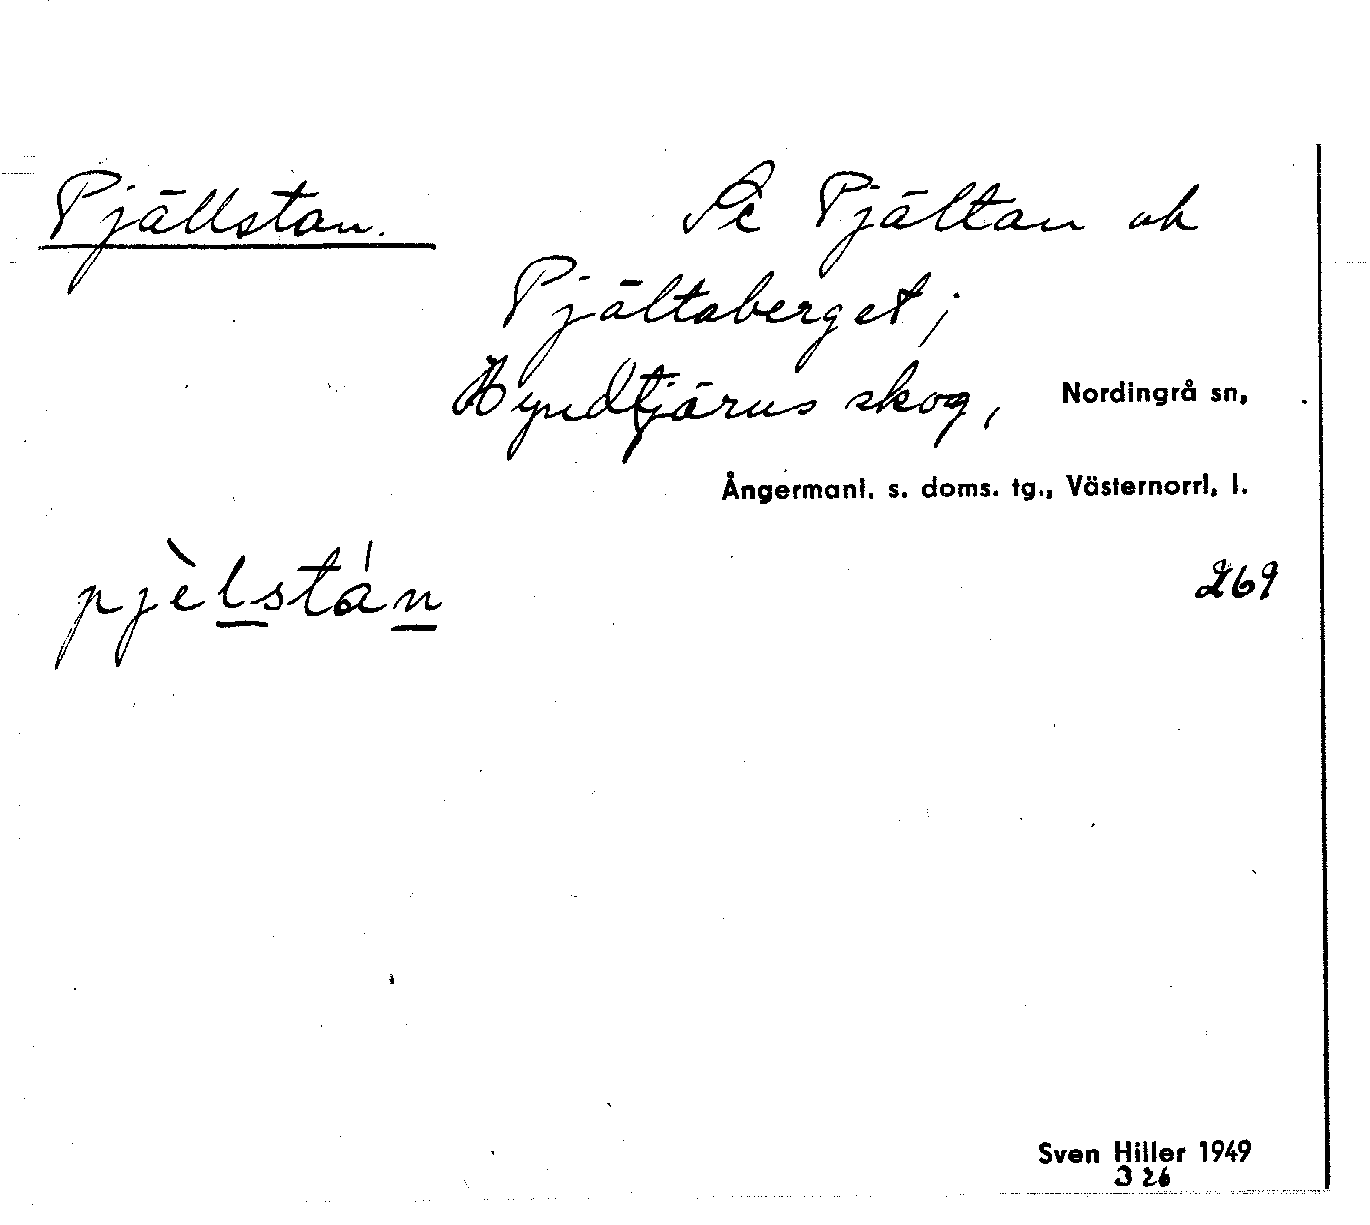 Pjällstan. Se Pjältan och
Pjältaberget;
Hyndtjärns skog, Nordingrå sn,
Ångermanl. s. doms. tg., Västernorrl. l.
pjèlstán 269
Sven Hiller 1949
326